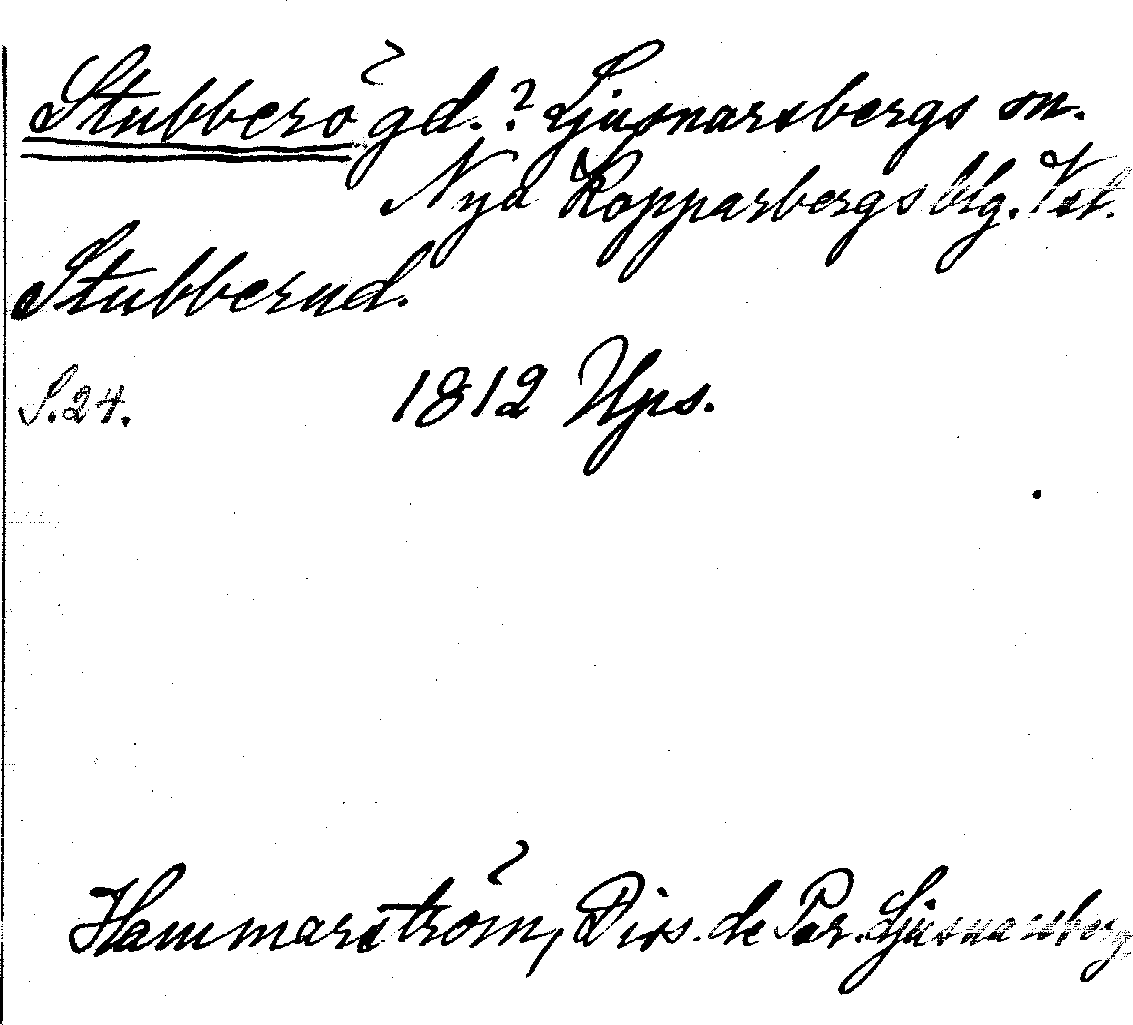 Stubberö gd.? Ljusnarsbergs sn.
Nya Kopparbergs blg. Vst.
Stubberud.
S. 24. 1812 Ups.
Hammarström, Diss. de Par. Ljusnarsberg